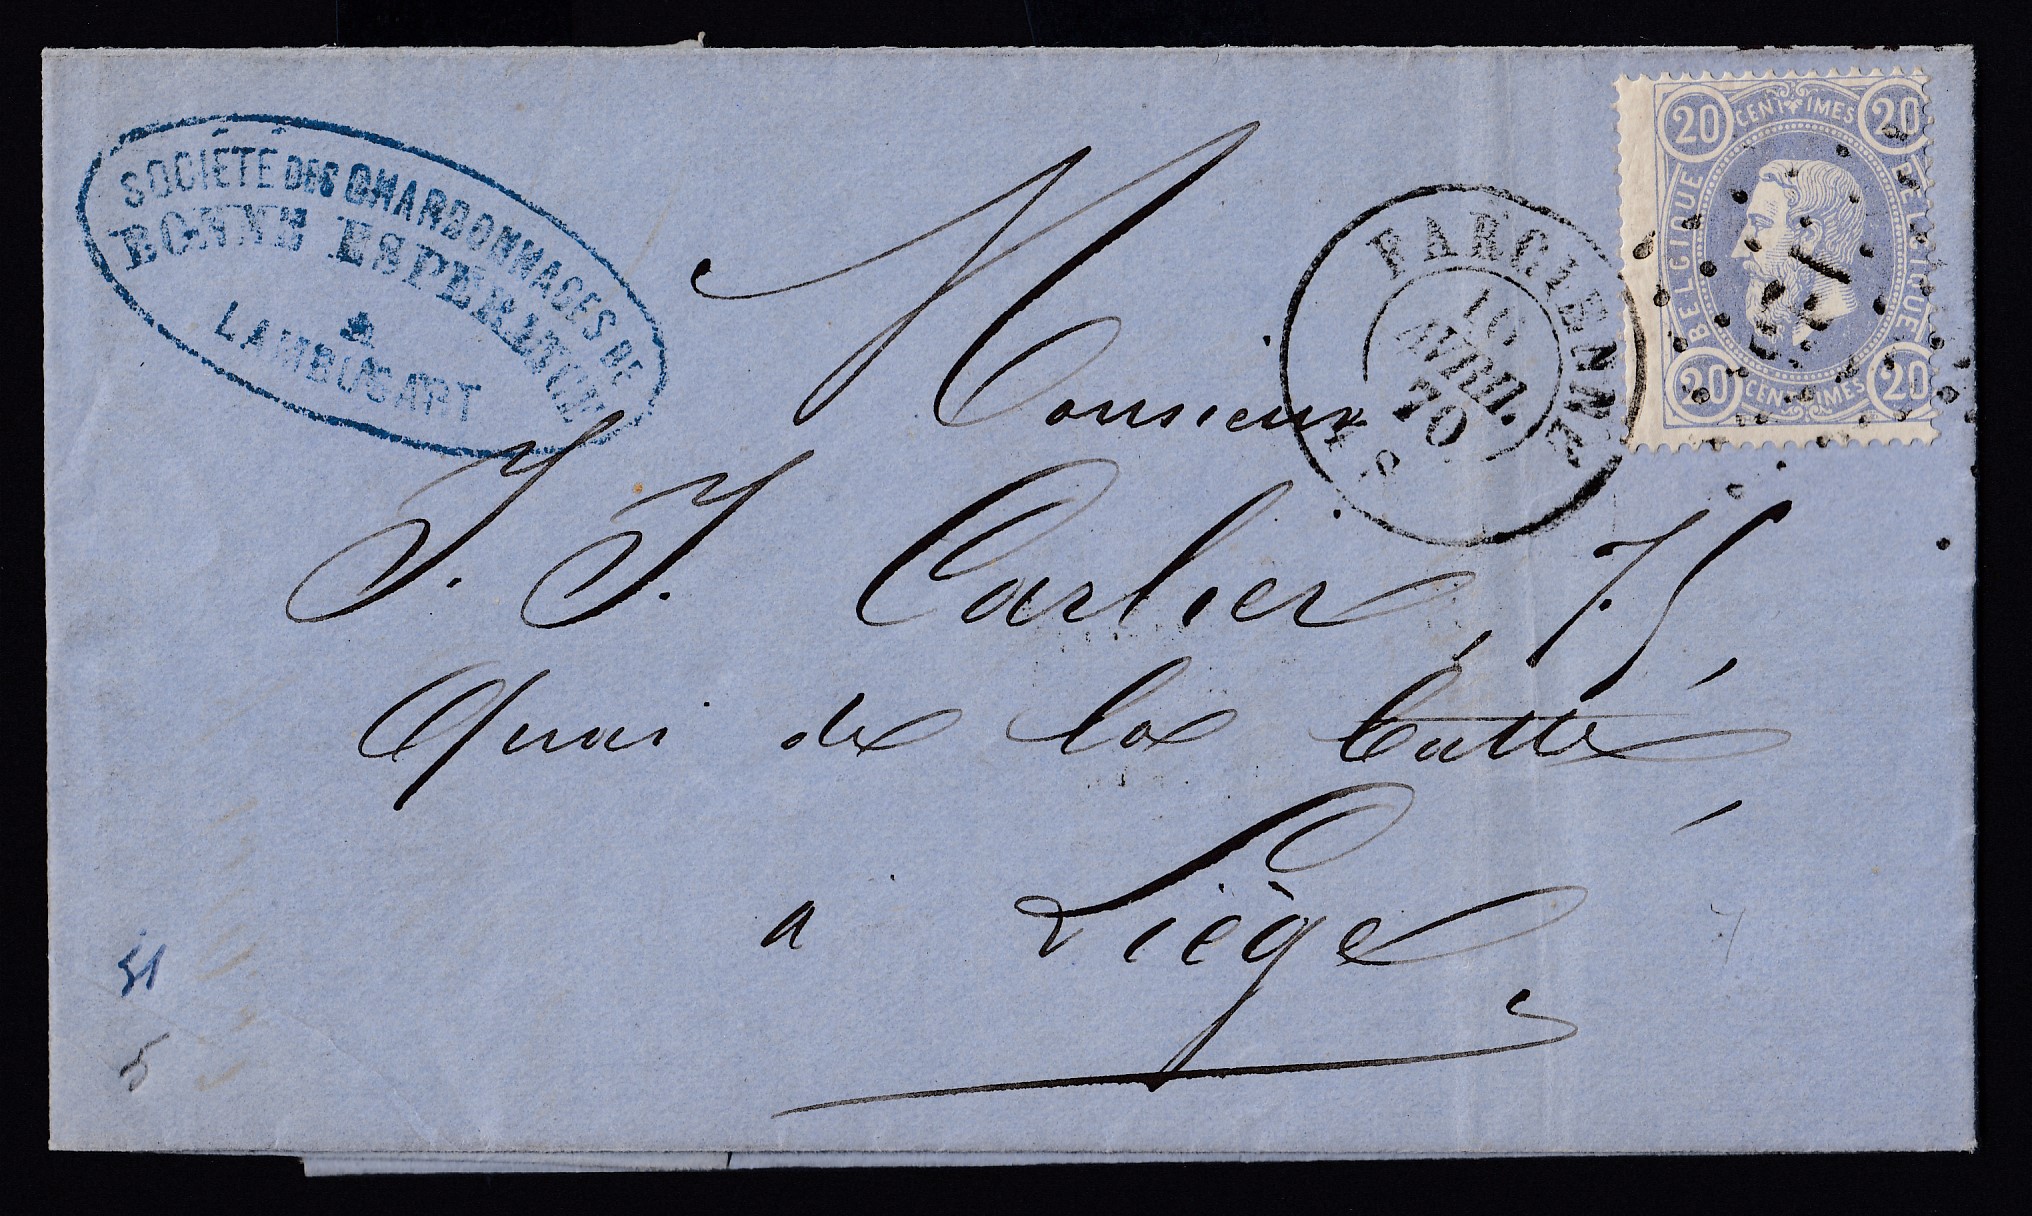 SOCIÉTÉ DES CHARBONNAGES DE
BONNE ESPÉRANCE
A
LAMBUSART
FARCIENNE
10
AVRIL
70
20 CENTIMES 20
BELGIQUE BELGIQUE
20 CENTIMES 20
Monsieur
J. J. Carlier, 75,
Quai de la batte,
a Liège
51
5